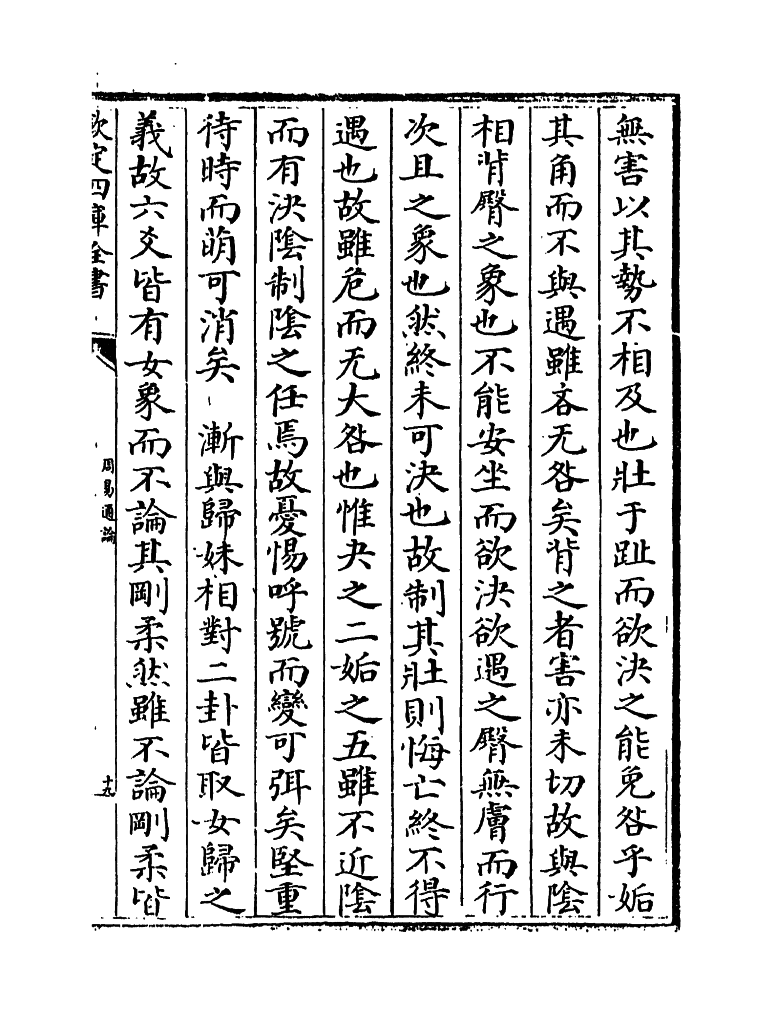 無害以其勢不相及也壯于趾而欲決之能免咎乎姤
其角而不與遇雖吝无咎矣背之者害亦未切故與陰
相背臀之象也不能安坐而欲決欲遇之臀無膚而行
次且之象也然終未可決也故制其壯則悔亡終不得
遇也故雖危而无大咎也惟夬之二姤之五雖不近陰
而有決陰制陰之任焉故憂惕呼號而變可弭矣堅重
待時而萌可消矣 漸與歸妹相對二卦皆取女歸之
義故六爻皆有女象而不論其剛柔然雖不論剛柔皆
欽定四庫全書
周易通論
十九